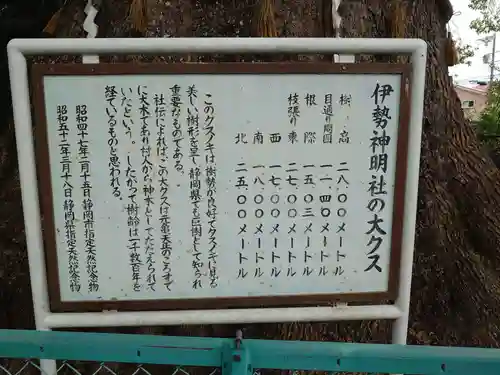 伊勢神明社の大クス
樹高　二八・〇〇メートル
目通り周囲　一一・四〇メートル
根際　一五・〇三メートル
枝張り東　二七・〇〇メートル
西　一七・〇〇メートル
南　一八・〇〇メートル
北　二五・〇〇メートル
このクスノキは樹勢が良好でクスノキに見る
美しい樹形を呈して、静岡県でも巨樹として知られ
重要なものである。
社伝によれば、この大クスは元亀天正のころすで
に大木であり村人から神木としてたたえられて
いたという。したがって樹齢は一千数百年を
経ているものと思われる。
昭和四十七年二月十五日静岡市指定天然記念物
昭和五十二年三月十八日静岡県指定天然記念物